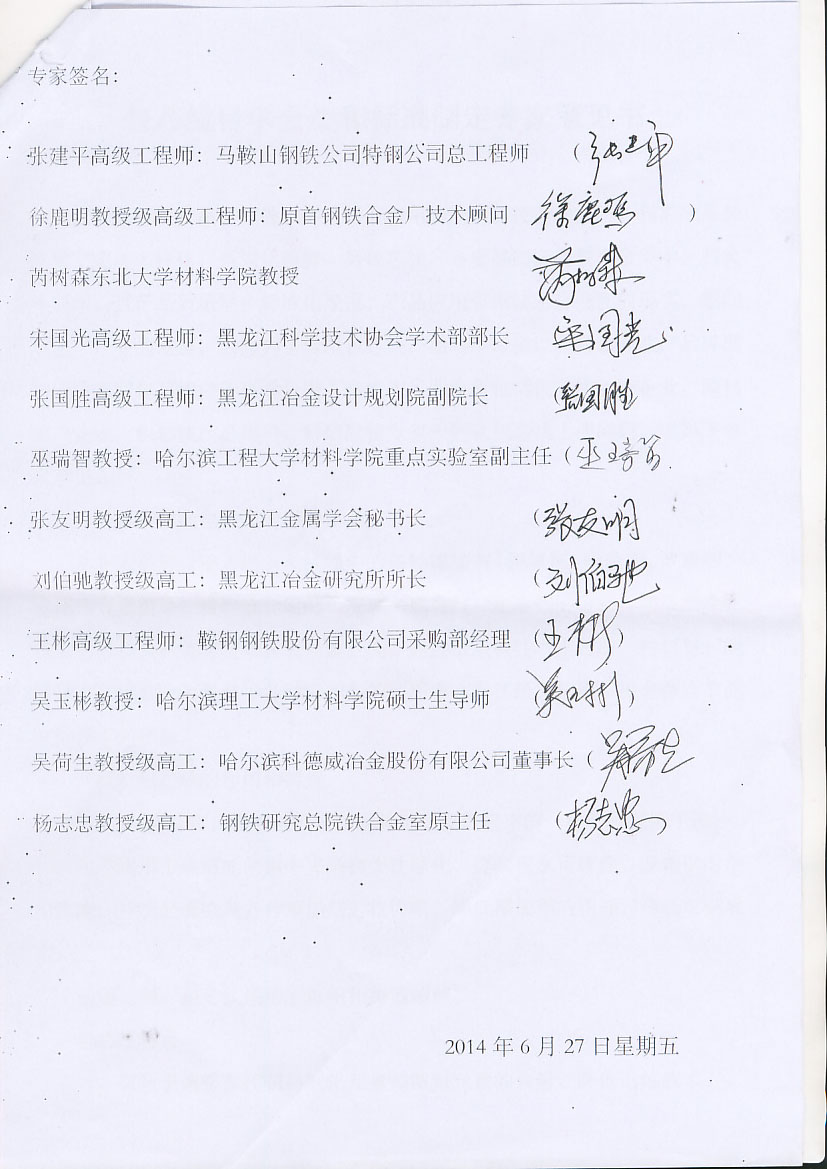 专家签名：
张建平高级工程师：马鞍山钢铁公司特钢公司总工程师 （张建平
徐鹿明教授级高级工程师：原首钢铁合金厂技术顾问 徐鹿鸣 ）
芮树森东北大学材料学院教授 芮树森
宋国光高级工程师：黑龙江科学技术协会学术部部长 宋国光
张国胜高级工程师：黑龙江冶金设计规划院副院长 张国胜
巫瑞智教授：哈尔滨工程大学材料学院重点实验室副主任（巫瑞智
张友明教授级高工：黑龙江金属学会秘书长 （张友明
刘伯驰教授级高工：黑龙江冶金研究所所长 （刘伯驰
王彬高级工程师：鞍钢钢铁股份有限公司采购部经理 （王彬）
吴玉彬教授：哈尔滨理工大学材料学院硕士生导师 （吴玉彬）
吴荷生教授级高工：哈尔滨科德威冶金股份有限公司董事长（ 吴荷生
杨志忠教授级高工：钢铁研究总院铁合金室原主任 （杨志忠）
2014 年 6 月 27 日星期五